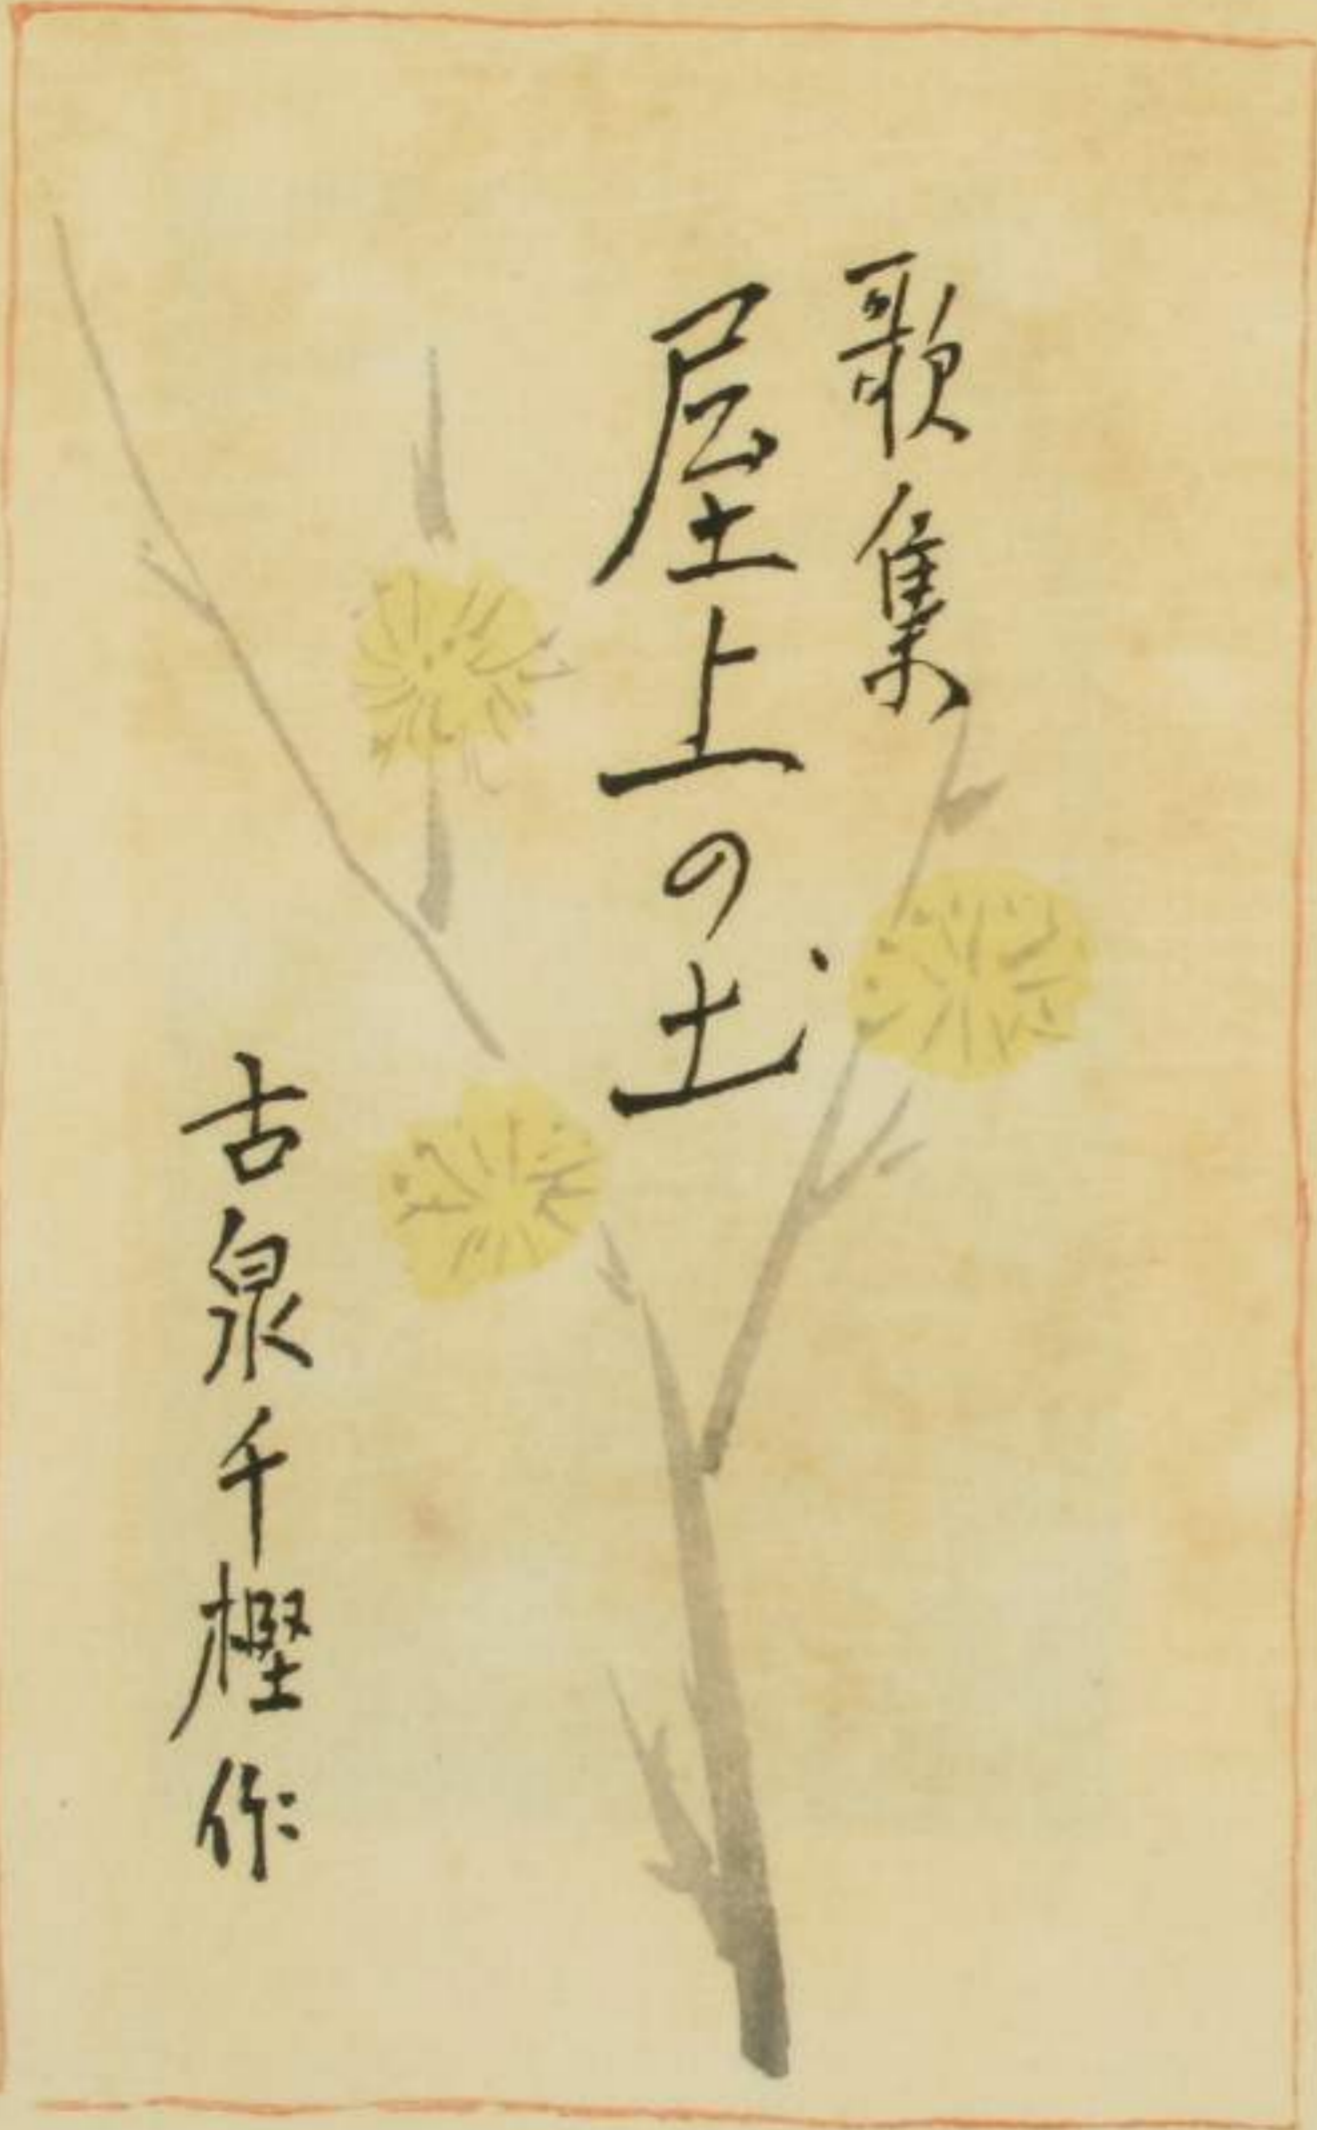 歌集
屋上の土
古泉千樫作